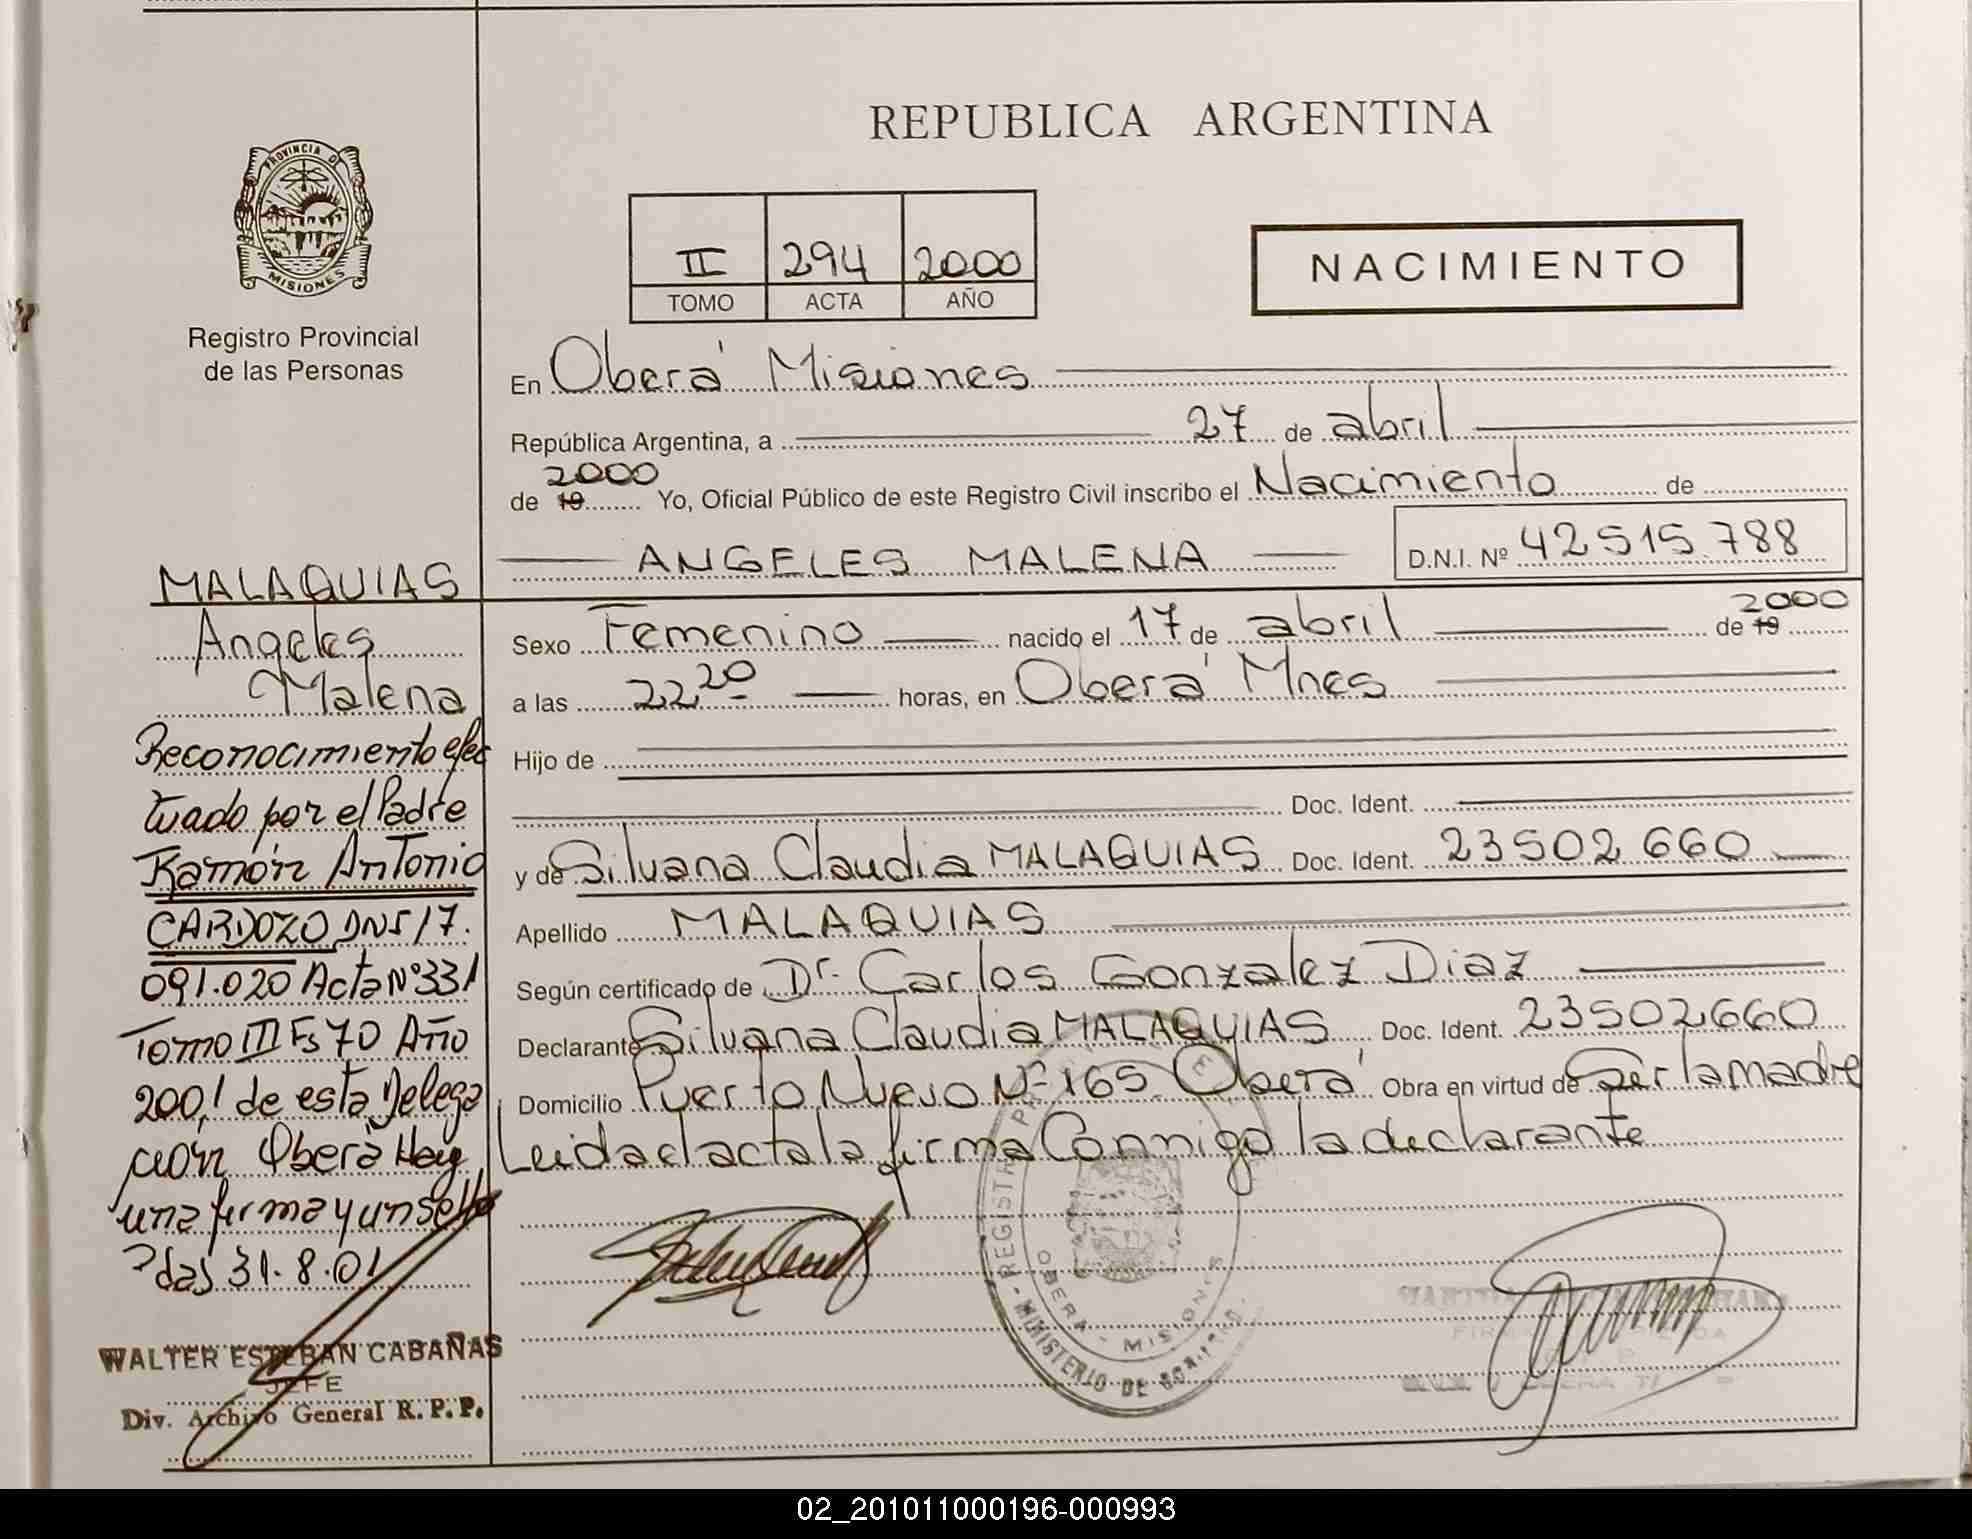 REPUBLICA ARGENTINA
PROVINCIA D
MISIONES
Registro Provincial
de las Personas
II 294 2000
TOMO ACTA AÑO
NACIMIENTO
En Oberá Misiones
República Argentina, a 27 de abril
de 19 2000 Yo, Oficial Público de este Registro Civil inscribo el Nacimiento de
ANGELES MALENA D.N.I. Nº 42515788
Sexo Femenino nacido el 17 de abril de 19 2000
a las 22 20 horas, en Oberá Mnes
Hijo de
Doc. Ident.
y de Silvana Claudia MALAQUIAS Doc. Ident. 23502660
Apellido MALAQUIAS
Según certificado de Dr. Carlos Gonzalez Diaz
Declarante Silvana Claudia MALAQUIAS Doc. Ident. 23502660
Domicilio Puerto Nuevo Nº 165 Oberá Obra en virtud de Ser la madre
Leida el acta la firma Conmigo la declarante
MALAQUIAS
Angeles
Malena
Reconocimiento efec
tuado por el Padre
Ramón Antonio
CARDOZO DNI 17.
091.020 Acta Nº 331
Tomo III Fs 70 Año
2001 de esta Delega
ción Oberá Hay
una firma y un sello
das 31.8.01
WALTER ESTEBAN CABAÑAS
JEFE
Div. Archivo General R.P.P.
OBERA - MISIONES
MINISTERIO DE
02_201011000196-000993